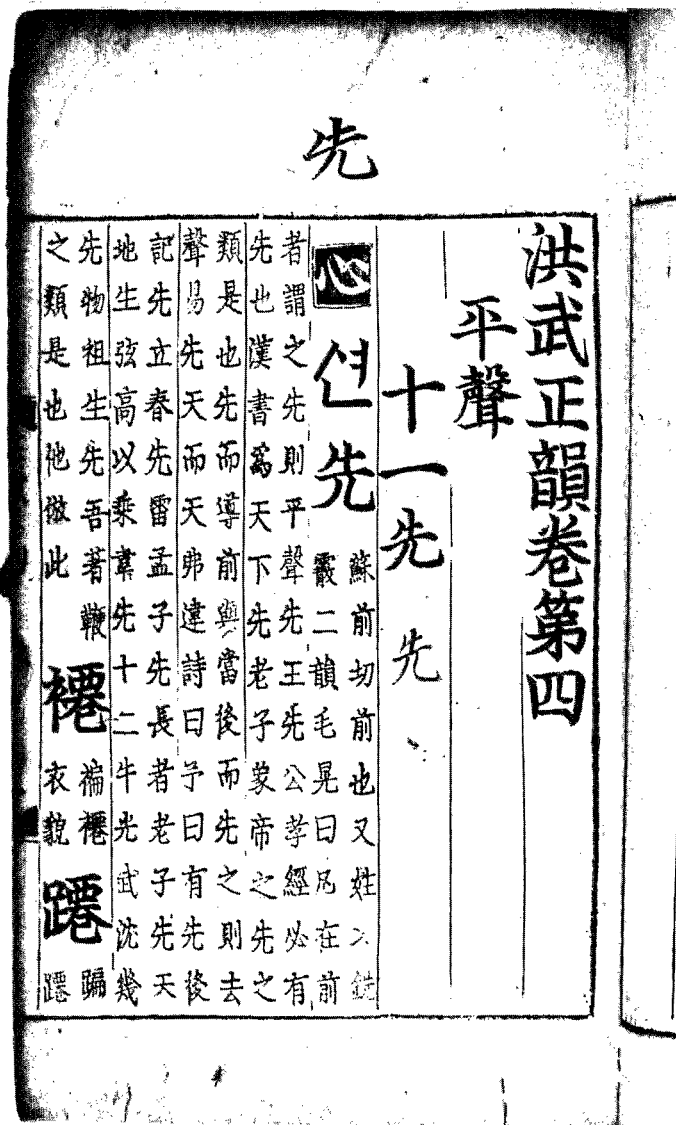 先
洪武正韻卷第四
平聲
十一先 先
心 션 先
蘇前切前也又姓又銑
霰二韻毛晃曰凡在前
者謂之先則平聲先王先公孝經必有
先也漢書爲天下先老子象帝之先之
類是也先而導前與當後而先之則去
聲易先天而天弗違詩曰予曰有先後
記先立春先雷孟子先長者老子先天
地生弦高以乘韋先十二牛光武沈幾
先物祖生先吾著鞭
之類是也他倣此
褼
褊褼
衣貌
蹮
蹁
蹮